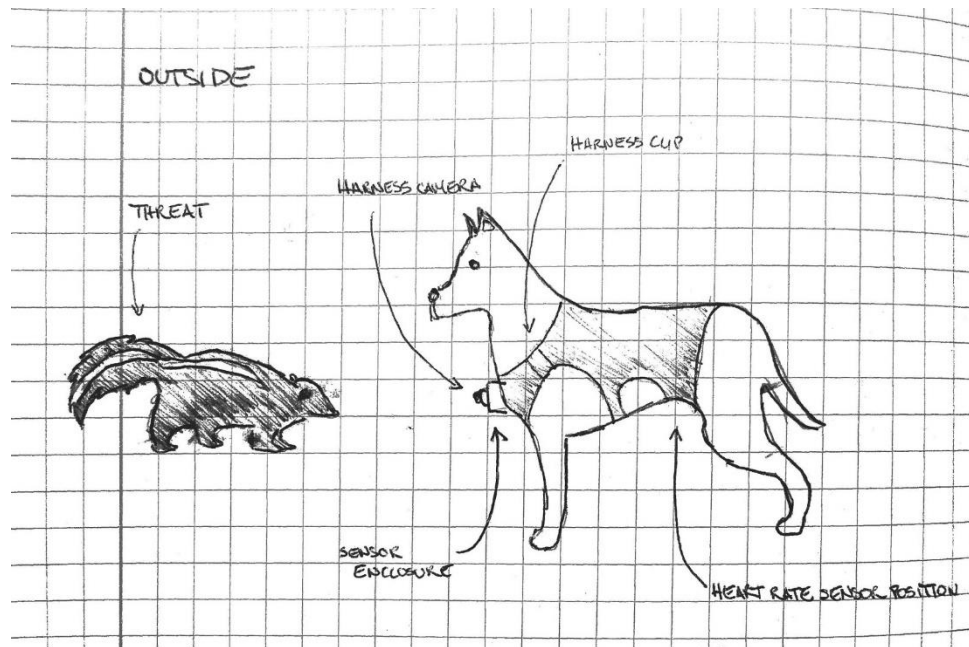 OUTSIDE
HARNESS CLIP
HARNESS CAMERA
THREAT
SENSOR
ENCLOSURE
HEART RATE SENSOR POSITION